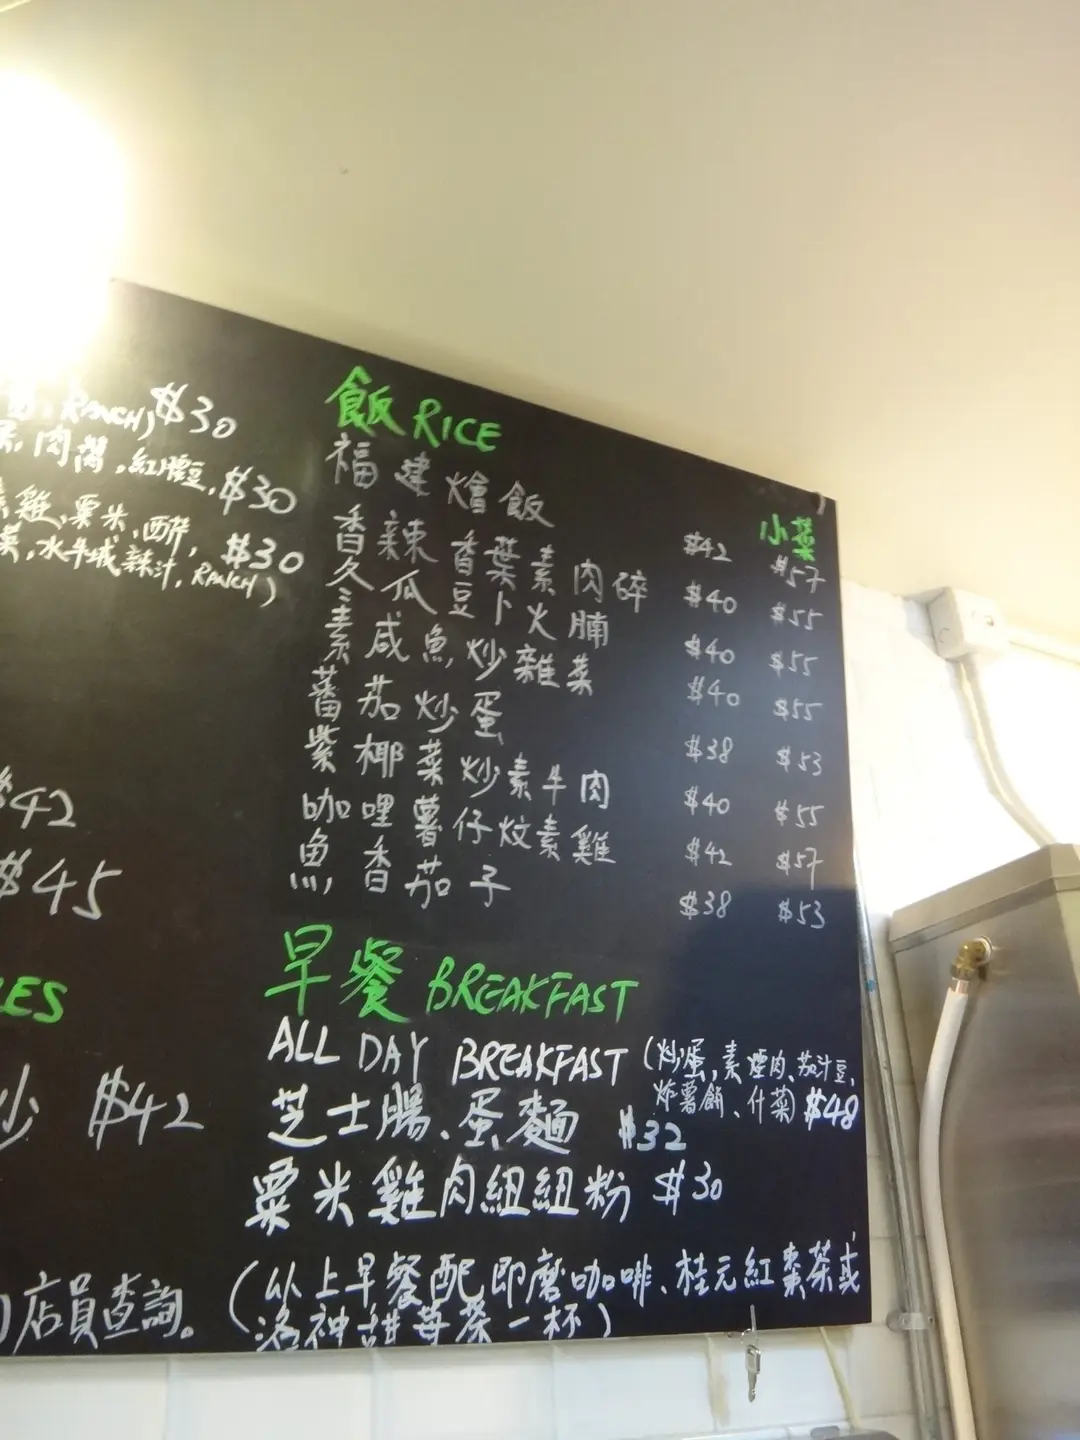 RANCH) $30
肉醬,紅腰豆, $30
雞,粟米,西芹, $30
,水牛城辣汁, RANCH)
$42
$45
ES
炒 $42
店員查詢。
飯 RICE
小菜
福建燴飯 $42 $57
香辣香葉素肉碎 $40 $55
冬瓜豆卜火腩 $40 $55
素咸魚炒雜菜 $40 $55
蕃茄炒蛋 $38 $53
紫椰菜炒素牛肉 $40 $55
咖哩薯仔炆素雞 $42 $57
魚香茄子 $38 $53
早餐 BREAKFAST
ALL DAY BREAKFAST (炒蛋,素煙肉、茄汁豆、
炸薯餅、什菜) $48
芝士腸、蛋麵 $32
粟米雞肉紐紐粉 $30
(以上早餐配即磨咖啡、桂元紅棗茶或
洛神甜莓茶一杯)